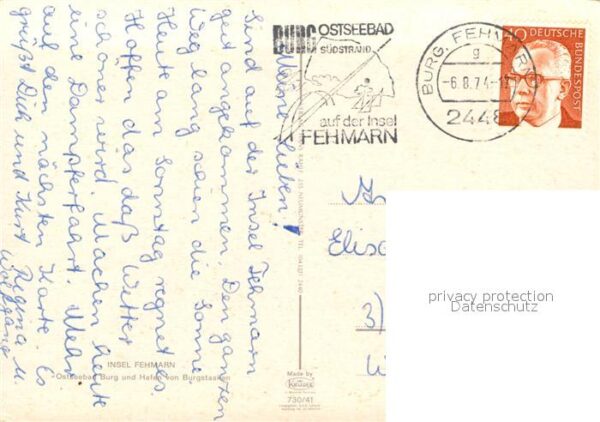 Meine Lieben!
Sind auf der Insel Fehmarn
gut angekommen. Den ganzen
Weg lang schien die Sonne
Heute am Sonntag regnet es.
Hoffen das daß Wetter
schöner wird. Machen heute
eine Dampferfahrt. Mehr
auf den nächsten Karte. Es
grüßt Dich und Kurt Regina u.
Wolfgang
BURG OSTSEEBAD
SÜDSTRAND
auf der Insel
FEHMARN
BURG, FEHMARN
g
-6.8.74-
2448
DEUTSCHE BUNDESPOST
Elis
3)
privacy protection
Datenschutz
INSEL FEHMARN
Ostseebad Burg und Hafen von Burgstaaken
Made by
KRÜGER
730/41